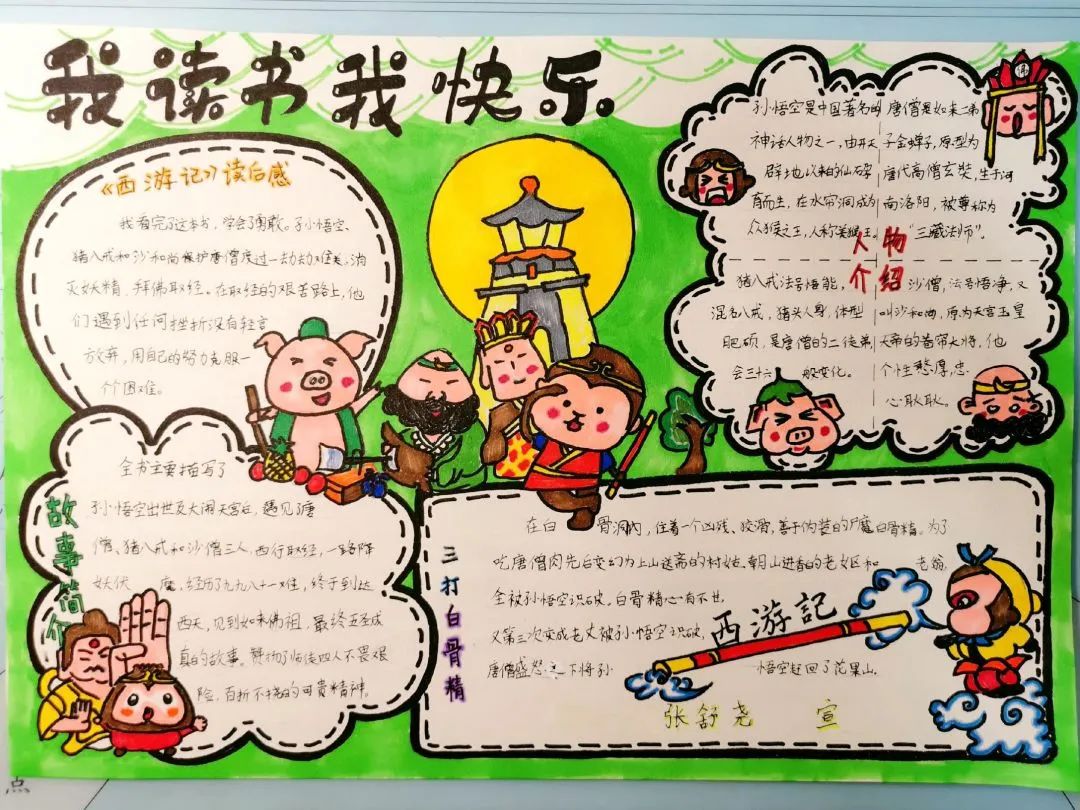 我读书我快乐
《西游记》读后感
我看完了这本书,学会了勇敢。孙悟空、
猪八戒和沙和尚保护唐僧度过一劫劫难关,消
灭妖精、拜佛取经。在取经的艰苦路上,他
们遇到任何挫折没有轻言
放弃,用自己的努力克服一
个个困难。
人物
介绍
孙悟空是中国著名的
神话人物之一,由开天
辟地以来的仙石碎
育而生,在水帘洞成为
众猴之王,人称美猴王。
唐僧是如来二弟
子金蝉子,原型为
唐代高僧玄奘,生于河
南洛阳,被尊称为
“三藏法师”。
猪八戒法号悟能,
混名八戒,猪头人身,体型
肥硕,是唐僧的二徒弟,
会三十六般变化。
沙僧,法号悟净,又
叫沙和尚,原为天宫玉皇
大帝的卷帘大将,他
个性憨厚,忠
心耿耿。
佛
故事简介
全书主要描写了
孙悟空出世及大闹天宫后,遇见了唐
僧、猪八戒和沙僧三人,西行取经,一路降
妖伏魔,经历了九九八十一难,终于到达
西天,见到如来佛祖,最终五圣成
真的故事。赞扬了师徒四人不畏艰
险,百折不挠的可贵精神。
三打白骨精
在白骨洞内,住着一个凶残、狡滑,善于伪装的尸魔白骨精。为了
吃唐僧肉先后变幻为上山送斋的村姑、朝山进香的老妪和老翁,
全被孙悟空识破。白骨精心有不甘,
又第三次变成老丈被孙悟空识破,
唐僧盛怒之下将孙悟空赶回了花果山。
西游記
张舒尧 宣
点